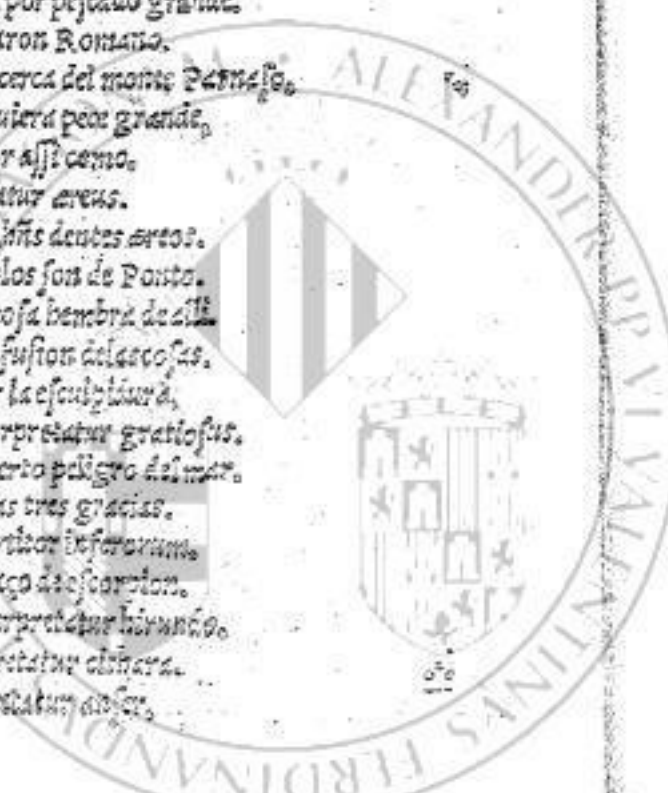 por pescado grande.
aron Romano.
cerca del monte Parnaso.
quiera pece grande,
r assi como.
atur æreus.
dentes æreos.
los son de Ponto.
osa hembra de alli.
fusion delascosas.
r la esculptura,
rpretatur gratiosus.
erto peligro del mar.
as tres gracias.
inferorum.
aço de escorpion.
erpretatur hirundo.
retatur cithara.
retatur anser,
ALEXANDER PP VI VALENTINVS FERDINANDV